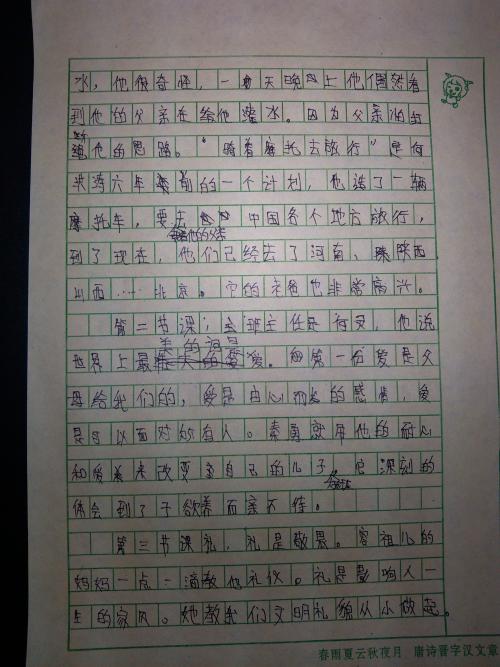 水，他很奇怪，一天晚上他偶然看
到他的父亲在给他灌水。因为父亲
他的思路。“骑着摩托去旅行”是何
六年前的一个计划，他诱了一辆
摩托车，要去中国各个地方旅行，
带着他的父亲
到了现在，他们已经去了河南、陕西
山西……北京。它的爸爸也非常高兴。
第二节课；主班主任是爱，他说
美的词是
世界上最爱。第一份爱是父
母给我们的，爱是由心而发的感情，爱
是可以面对所有人。索勇就用他的耐心
和爱来改变自己的儿子，他深刻的
体会到了子欲养而亲不待。
第三节课礼，礼是敬畏。容祖儿的
妈妈一点一滴教他礼仪。礼是影响人一
生的家风。她教我们文明礼貌从小做起。
春雨夏云秋夜月 唐诗晋字汉文章